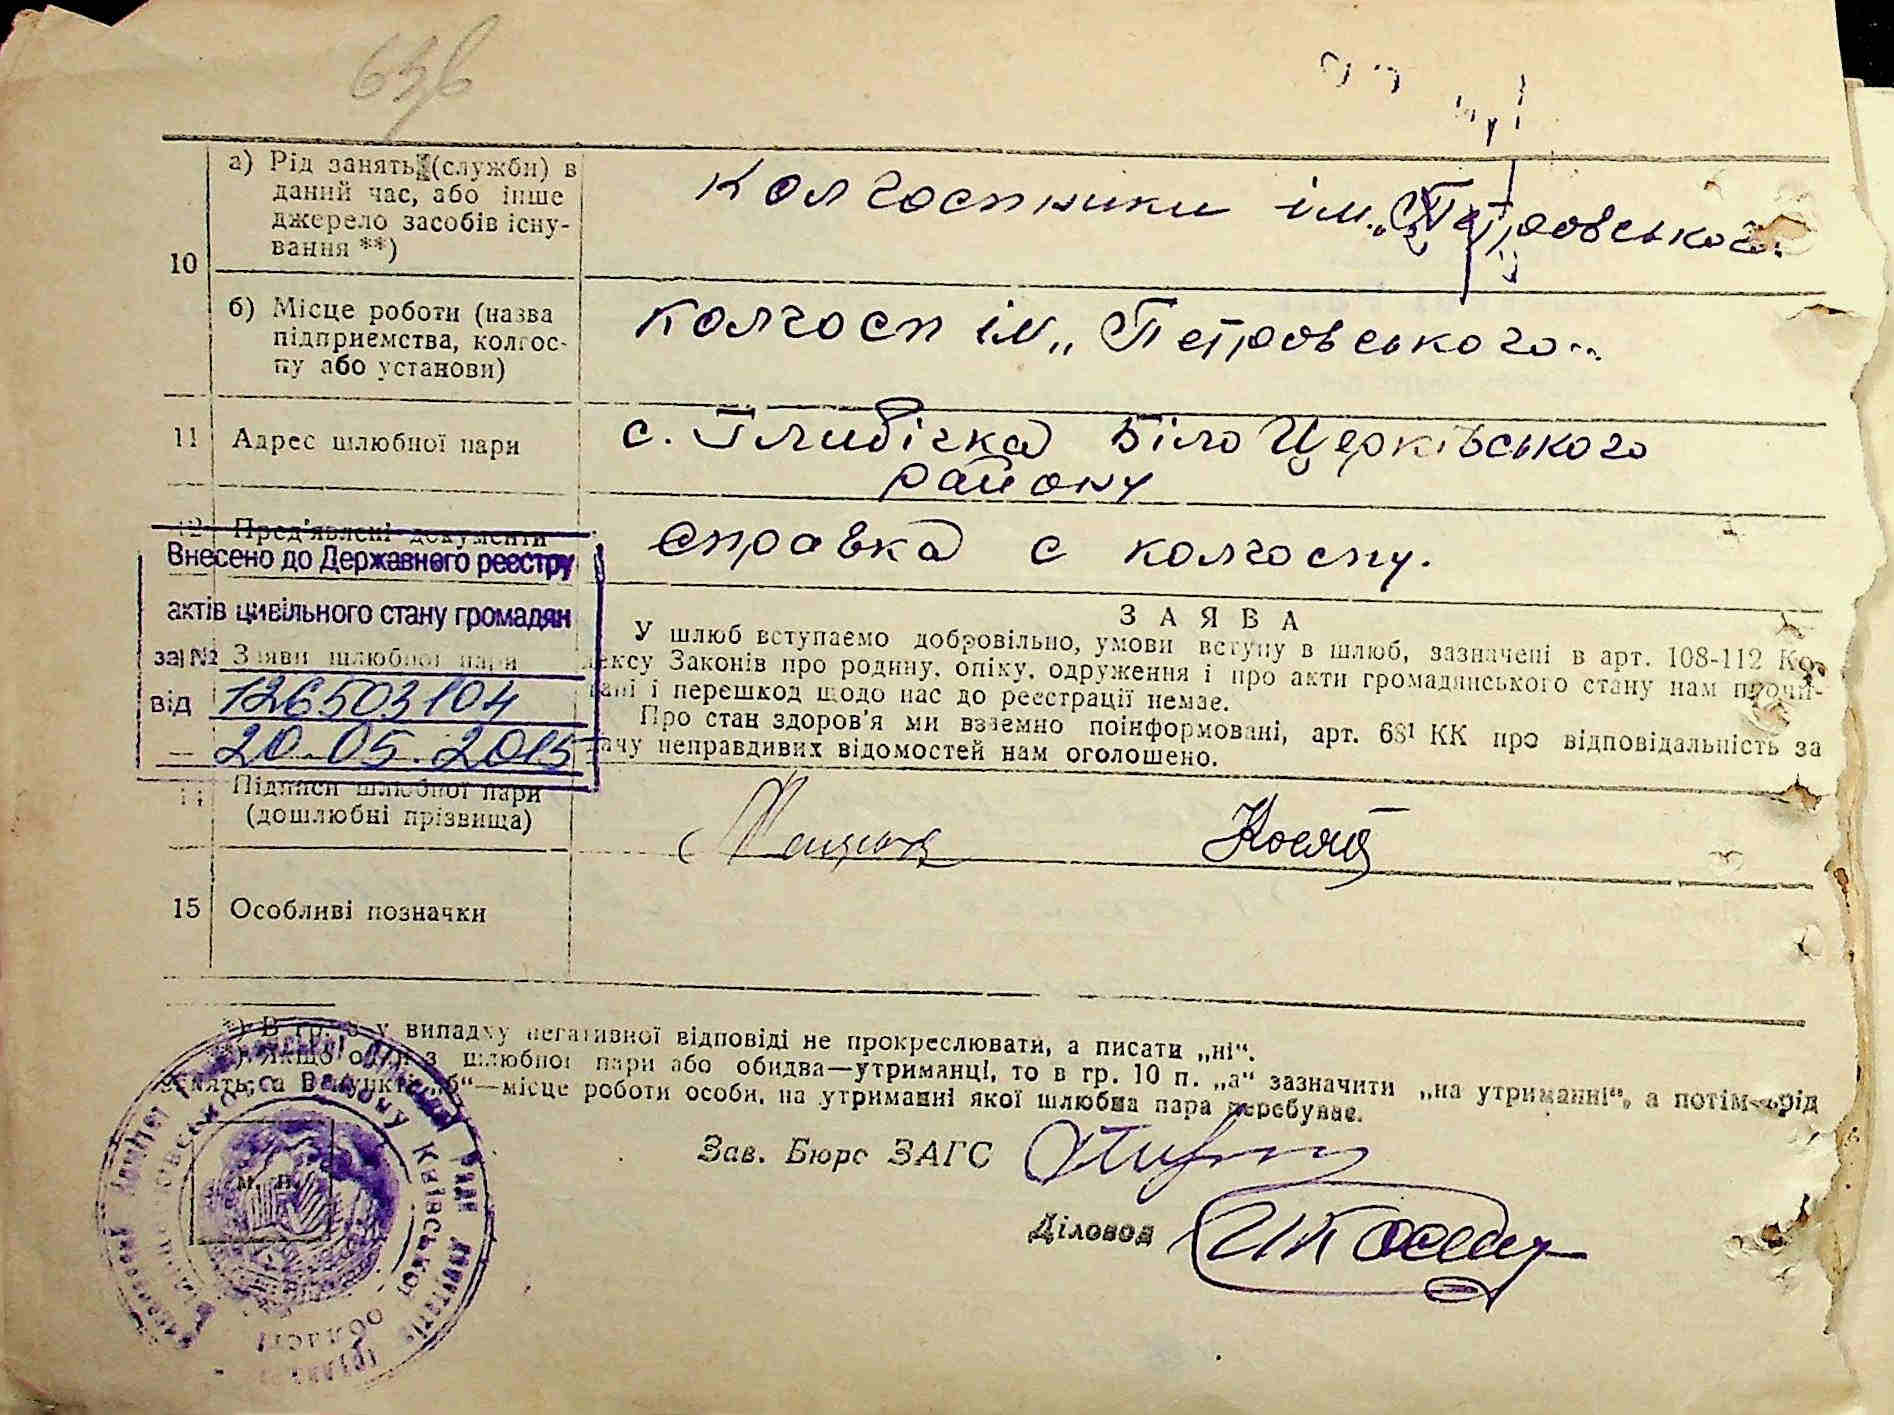 а) Рід занять (служби) в
даний час, або інше
джерело засобів існу-
вання **)
колгоспники ім. „Петровського.
10
б) Місце роботи (назва
підприємства, колгос-
пу або установи)
Колгосп ім „Петровського"
11 Адрес шлюбної пари
с. Глибічка БілоЦерківського
району
12 Пред'явлені документи
справка с колгоспу.
Внесено до Державного реєстру
актів цивільного стану громадян
за № Заяви шлюбної пари
від 126503104
20.05.2015
ЗАЯВА
У шлюб вступаємо добровільно, умови вступу в шлюб, зазначені в арт. 108-112 Ко-
дексу Законів про родину, опіку, одруження і про акти громадянського стану нам прочи-
тані і перешкод щодо нас до реєстрації немає.
Про стан здоров'я ми взаємно поінформовані, арт. 68¹ КК про відповідальність за
дачу неправдивих відомостей нам оголошено.
Підписи шлюбної пари
(дошлюбні прізвища)
15 Особливі позначки
*) В гр. у випадку негативної відповіді не прокреслювати, а писати „ні“.
**) Якщо один з шлюбної пари або обидва—утриманці, то в гр. 10 п. „а“ зазначити „на утриманні“, а потім рід
занять, а в пункті „б“—місце роботи особи, на утриманні якої шлюбна пара перебуває.
Зав. Бюро ЗАГС
Діловод
м. п.
району Київської області